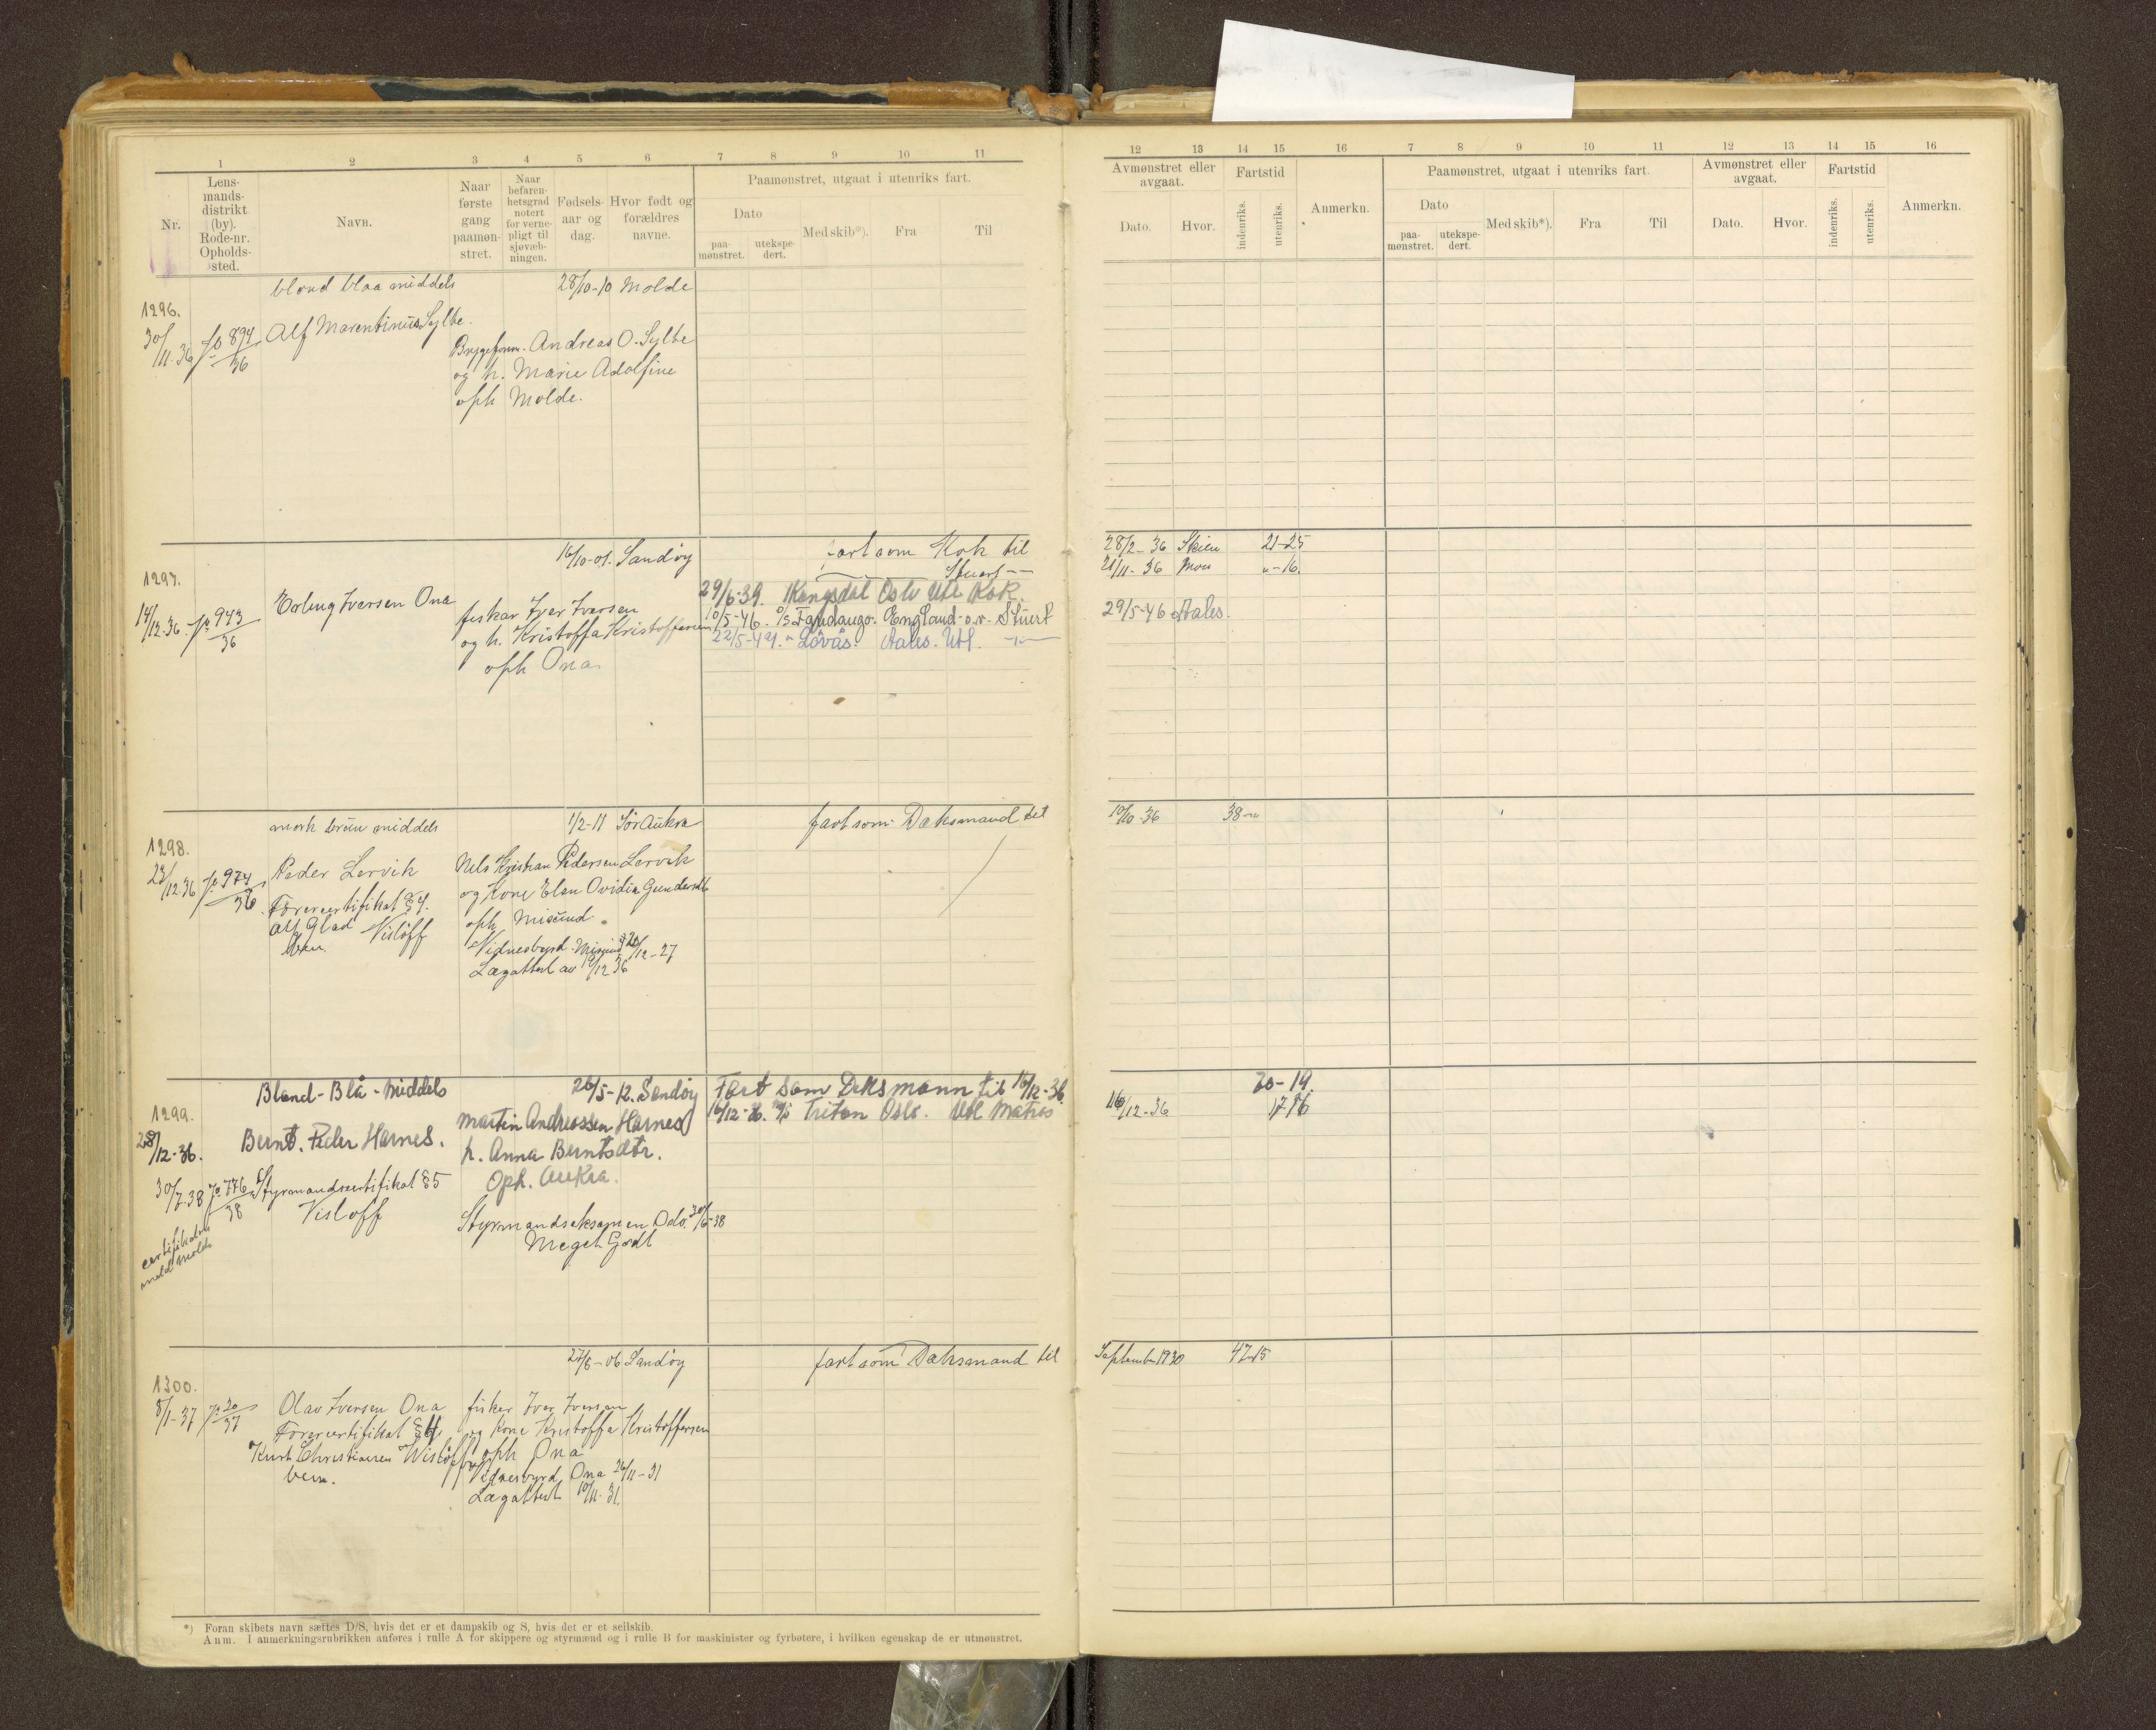 1 2 3 4 5 6 7 8 9 10 11
Nr.
Lens-
mands-
distrikt
(by).
Rode-nr.
Opholds-
sted.
Navn.
Naar
første
gang
paamøn-
stret.
Naar
befaren-
hetsgrad
notert
for verne-
pligt til
sjøvæb-
ningen.
Fødsels-
aar og
dag.
Hvor født og
forældres
navne.
Paamønstret, utgaat i utenriks fart.
Dato
paa-
mønstret.
utekspe-
dert.
Med skib*).
Fra
Til
blond blaa middels 28/10-10 Molde
1296.
30/11-36 894/36 Alf Marentinus Sylte.
Bryggeform. Andreas O. Sylte
og h. Marie Adolfine
oph Molde.
16/10-01. Sandøy fart som Kok til
Stuert
1297.
14/12-36 943/36 Erling Iversen Ona
fisker Iver Iversen
og h. Kristoffa Kristoffersen
oph Ona
29/6-39. Kongsdal Oslo Utl Kok.
10/5-46. England o.v. Stuert
22/5-49. " Løvås. Aales. Utl.
mørk brun middels 1/2-11 Sør Aukra fart som Dæksmand til
1298.
23/12-36 974/36 Peder Lervik
Nels Kristian Pedersen Lervik
og Kone Elen Ovidia Gundersdt
oph Misund.
Førercertifikat § 4.
Alf Glad Visløff
Vidnesbyrd. Misund 20/12-27
Lægattest av 19/12 36
Blond-Blå-Middels 26/5-12. Sandøy Fart som Deksmann til 16/12-36.
1299.
28/12-36. Bernt. Peder Harnes.
Martin Andreassen Harnes
h. Anna Berntsdtr.
Oph. Aukra.
16/12-36. Triton Oslo. Utl Matros
30/7-38 776/38 Styrmandscertifikat § 5
Visløff
Styrmandseksamen Oslo. 30/6-38
Meget Godt
27/6-06 Sandøy fart som Dæksmand til
1300.
8/1-37 20/37 Olav Iversen Ona
fisker Iver Iversen
og Kone Kristoffa Kristoffersen
oph Ona
Førercertifikat § 4
Kurt Christiansen Wisløff
Vidnesbyrd Ona 26/11-31
Lægattest 10/11-31.
*) Foran skibets navn sættes D/S, hvis det er et dampskib og S, hvis det er et seilskib.
Anm. I anmerkningsrubrikken anføres i rulle A for skippere og styrmænd og i rulle B for maskinister og fyrbøtere, i hvilken egenskap de er utmønstret.
12 13 14 15 16 7 8 9 10 11 12 13 14 15 16
Avmønstret eller
avgaat.
Dato.
Hvor.
Fartstid
indenriks.
utenriks.
Anmerkn.
Paamønstret, utgaat i utenriks fart.
Dato
paa-
mønstret.
utekspe-
dert.
Med skib*).
Fra
Til
Avmønstret eller
avgaat.
Dato.
Hvor.
Fartstid
indenriks.
utenriks.
Anmerkn.
28/2-36 Skien 21-25
21/11-36 "-16.
29/5-46 Aales.
10/10-36 38-"
20-19.
16/12-36
September 1930 47-15